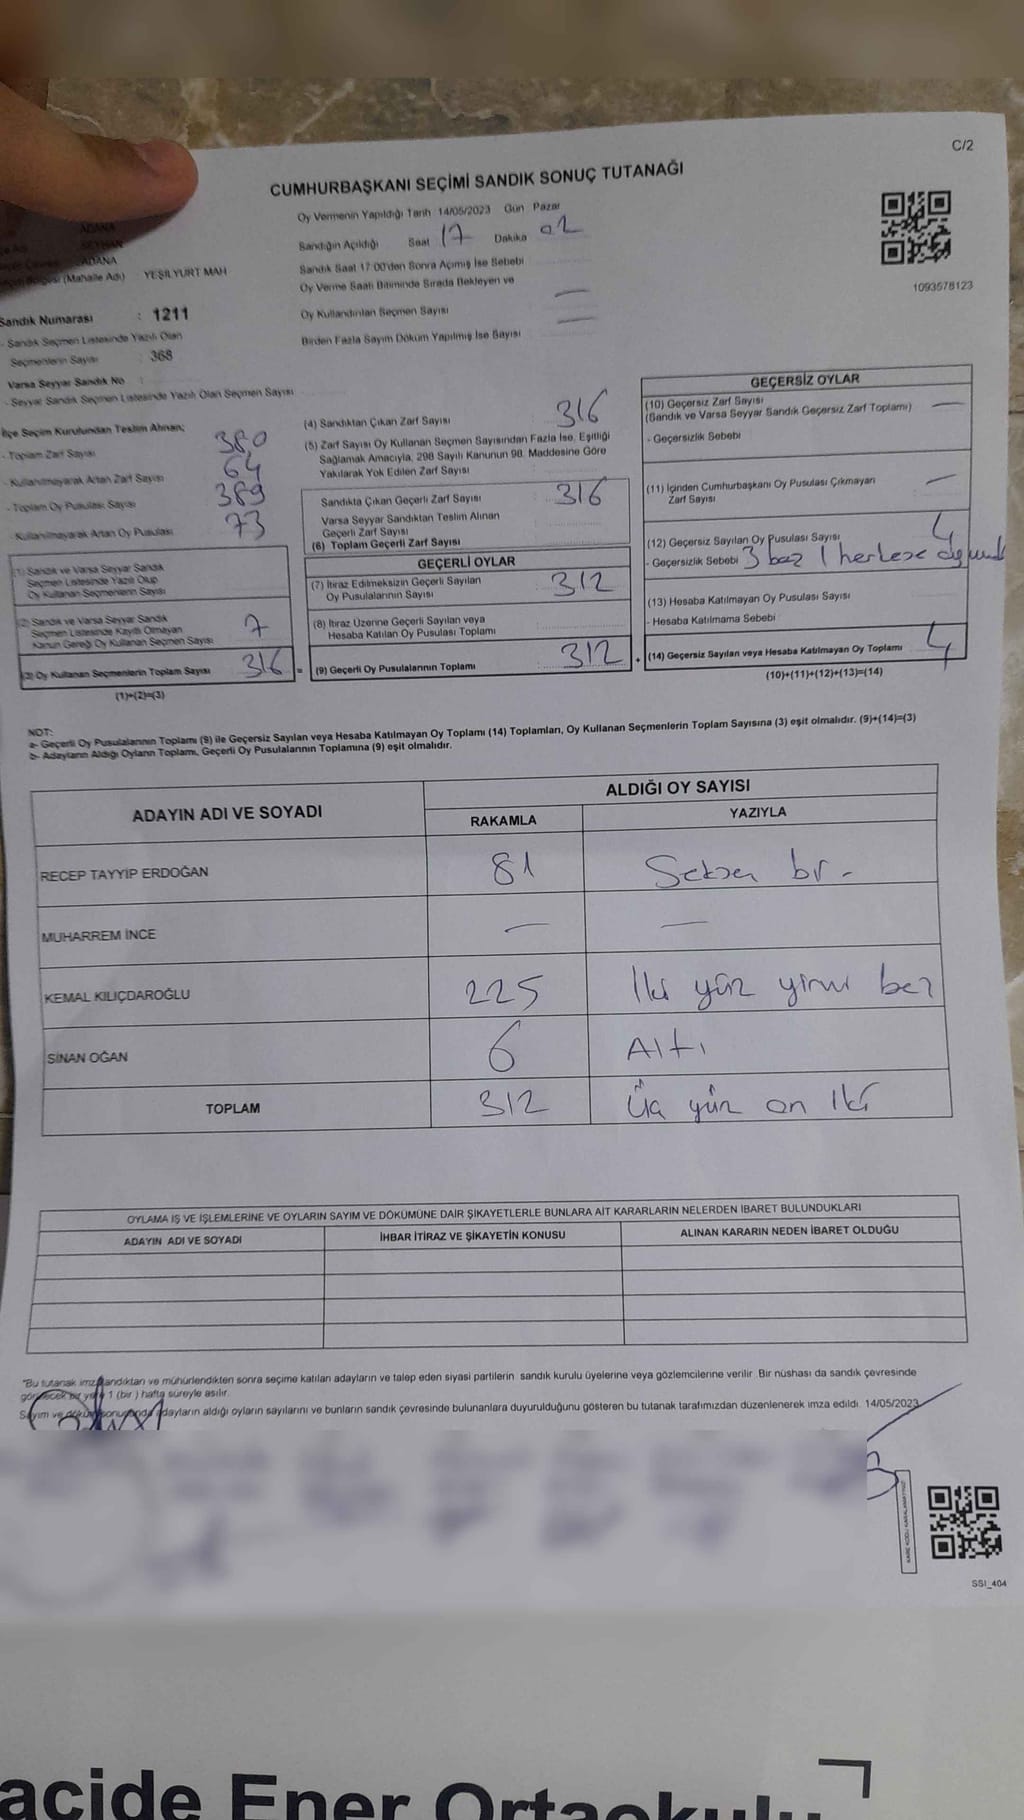 C/2
CUMHURBAŞKANI SEÇİMİ SANDIK SONUÇ TUTANAĞI
ADANA
SEYHAN
ADANA
(Mahalle Adı) YEŞİLYURT MAH
Sandık Numarası : 1211
- Sandık Seçmen Listesinde Yazılı Olan
Seçmenlerin Sayısı : 368
Varsa Seyyar Sandık No :
- Seyyar Sandık Seçmen Listesinde Yazılı Olan Seçmen Sayısı
Oy Vermenin Yapıldığı Tarih 14/05/2023 Gün Pazar
Sandığın Açıldığı Saat 17 Dakika 02
Sandık Saat 17:00'den Sonra Açılmış İse Sebebi
Oy Verme Saati Bitiminde Sırada Bekleyen ve
Oy Kullandırılan Seçmen Sayısı —
Birden Fazla Sayım Döküm Yapılmış İse Sayısı —
1093578123
İlçe Seçim Kurulundan Teslim Alınan;
- Toplam Zarf Sayısı 380
- Kullanılmayarak Artan Zarf Sayısı 64
- Toplam Oy Pusulası Sayısı 389
- Kullanılmayarak Artan Oy Pusulası 73
(1) Sandık ve Varsa Seyyar Sandık
Seçmen Listesinde Yazılı Olup
Oy Kullanan Seçmenlerin Sayısı
(2) Sandık ve Varsa Seyyar Sandık
Seçmen Listesinde Kayıtlı Olmayan
Kanun Gereği Oy Kullanan Seçmen Sayısı 7
(3) Oy Kullanan Seçmenlerin Toplam Sayısı 316 =
(1)+(2)=(3)
(4) Sandıktan Çıkan Zarf Sayısı 316
(5) Zarf Sayısı Oy Kullanan Seçmen Sayısından Fazla İse, Eşitliği
Sağlamak Amacıyla, 298 Sayılı Kanunun 98. Maddesine Göre
Yakılarak Yok Edilen Zarf Sayısı
Sandıkta Çıkan Geçerli Zarf Sayısı 316
Varsa Seyyar Sandıktan Teslim Alınan
Geçerli Zarf Sayısı
(6) Toplam Geçerli Zarf Sayısı
GEÇERLİ OYLAR
(7) İtiraz Edilmeksizin Geçerli Sayılan
Oy Pusulalarının Sayısı 312
(8) İtiraz Üzerine Geçerli Sayılan veya
Hesaba Katılan Oy Pusulası Toplamı
(9) Geçerli Oy Pusulalarının Toplamı 312 +
GEÇERSİZ OYLAR
(10) Geçersiz Zarf Sayısı
(Sandık ve Varsa Seyyar Sandık Geçersiz Zarf Toplamı) —
- Geçersizlik Sebebi
(11) İçinden Cumhurbaşkanı Oy Pusulası Çıkmayan
Zarf Sayısı —
(12) Geçersiz Sayılan Oy Pusulası Sayısı 4
- Geçersizlik Sebebi 3 boş 1 herkese
(13) Hesaba Katılmayan Oy Pusulası Sayısı
- Hesaba Katılmama Sebebi
(14) Geçersiz Sayılan veya Hesaba Katılmayan Oy Toplamı 4
(10)+(11)+(12)+(13)=(14)
NOT:
a- Geçerli Oy Pusulalarının Toplamı (9) ile Geçersiz Sayılan veya Hesaba Katılmayan Oy Toplamı (14) Toplamları, Oy Kullanan Seçmenlerin Toplam Sayısına (3) eşit olmalıdır. (9)+(14)=(3)
b- Adayların Aldığı Oyların Toplamı, Geçerli Oy Pusulalarının Toplamına (9) eşit olmalıdır.
ADAYIN ADI VE SOYADI ALDIĞI OY SAYISI
RAKAMLA YAZIYLA
RECEP TAYYİP ERDOĞAN 81 Seksen bir -
MUHARREM İNCE — —
KEMAL KILIÇDAROĞLU 225 İki yüz yirmi beş
SİNAN OĞAN 6 Altı
TOPLAM 312 Üç yüz on iki
OYLAMA İŞ VE İŞLEMLERİNE VE OYLARIN SAYIM VE DÖKÜMÜNE DAİR ŞİKAYETLERLE BUNLARA AİT KARARLARIN NELERDEN İBARET BULUNDUKLARI
ADAYIN ADI VE SOYADI İHBAR İTİRAZ VE ŞİKAYETİN KONUSU ALINAN KARARIN NEDEN İBARET OLDUĞU
"Bu tutanak imzalandıktan ve mühürlendikten sonra seçime katılan adayların ve talep eden siyasi partilerin sandık kurulu üyelerine veya gözlemcilerine verilir. Bir nüshası da sandık çevresinde
görülecek bir yere 1 (bir ) hafta süreyle asılır.
Sayım ve döküm sonucunda adayların aldığı oyların sayılarını ve bunların sandık çevresinde bulunanlara duyurulduğunu gösteren bu tutanak tarafımızdan düzenlenerek imza edildi. 14/05/2023
SSI_404
acide Ener Ortaokulu